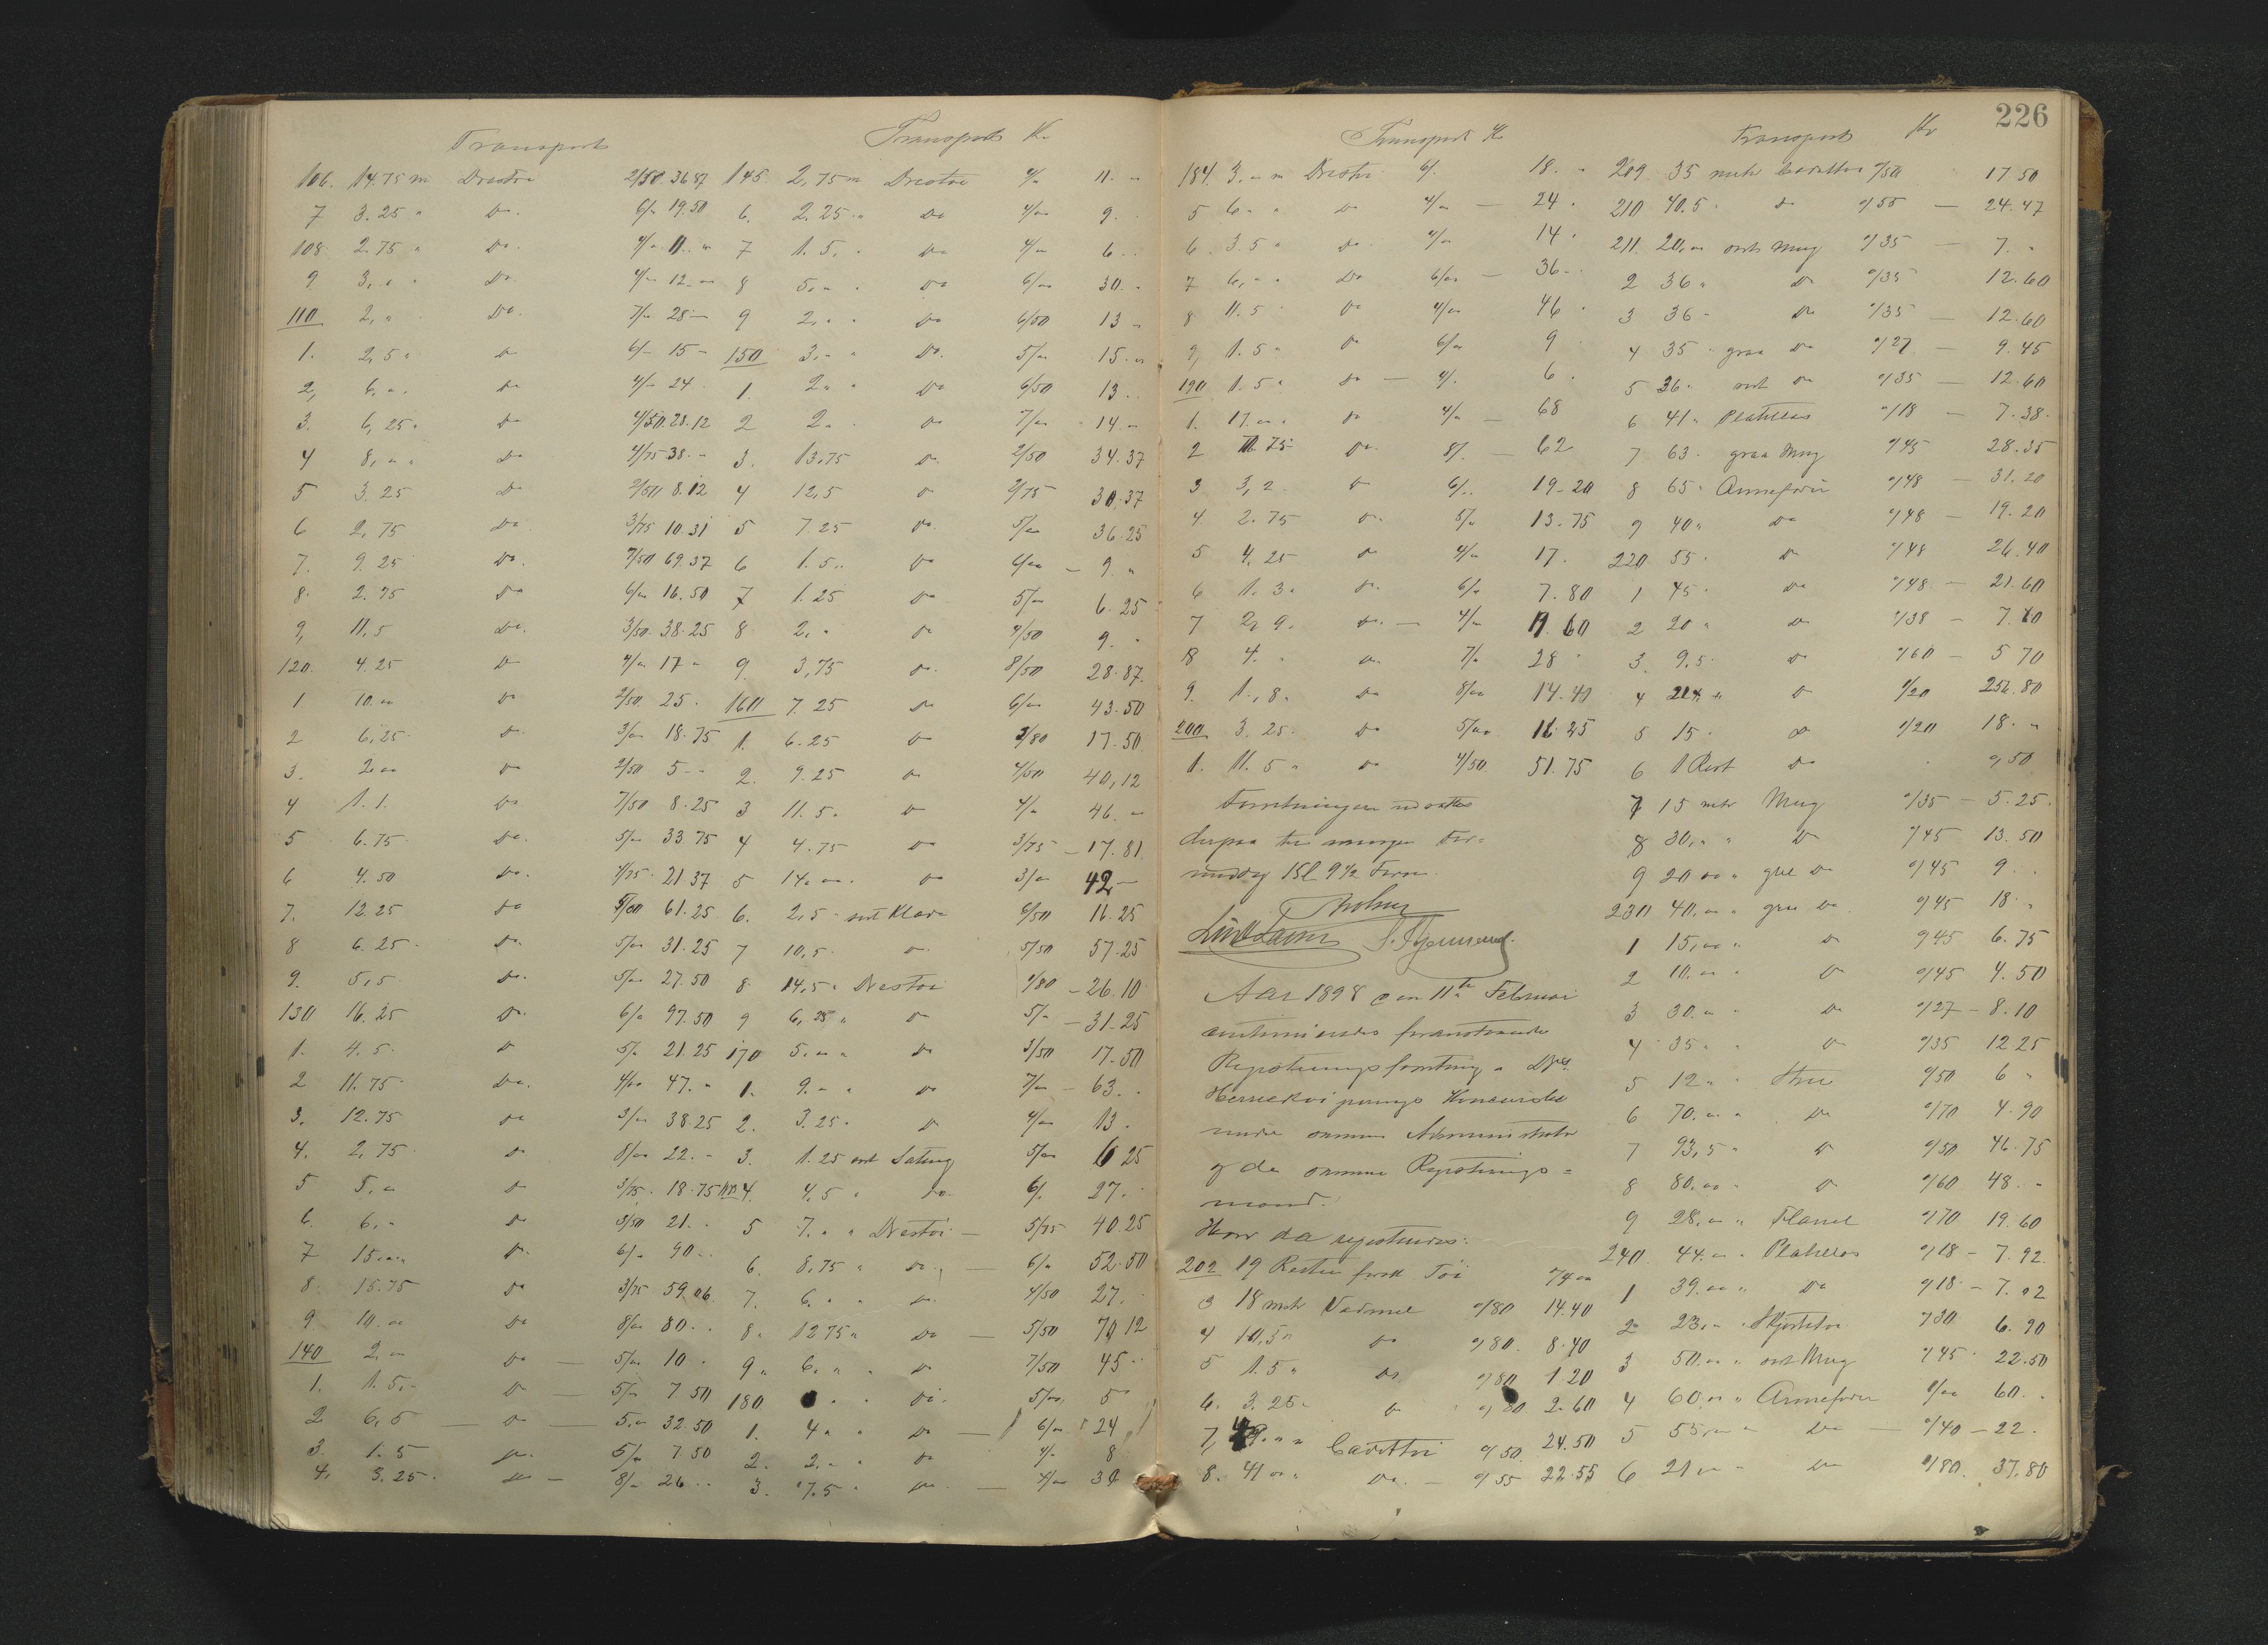 226
Transport
106. 14.75 m Drestøi 2/50. 36 87
7 3.25 " Do. 6/" 19.50
108. 2.75 " Do. 4/" 11. "
9 3, " " Do. 4/" 12 "
110 2, " Do. 7/" 28 —
1. 2,5 " Do 6/- 15 -
2, 6. " Do 4/- 24
3. 6,25 " Do 4/50. 28.12
4 8, " " Do 4/75 38. -
5 3.25 Do 2/50 8.12
6 2,75 Do 3/75 10.31
7. 9.25 Do. 7/50 69.37
8. 2.75 Do 6/" 16.50
9, 11,5 Do. 3/50. 38.25
120. 4.25 Do 4/" 17 -
1 10. " Do 2/50. 25.
2 6,25 Do. 3/" 18.75
3. 2. " Do 2/50 5 - -
4 1.1. Do 7/50 8.25
5 6.75 Do. 5/" 33 75
6 4.50 Do. 4/75. 21 37
7. 12.25 Do 5/00 61.25
8 6.25 Do. 5/" 31.25
9. 5,5 Do. 5/" 27.50
130 16.25 Do. 6/" 97.50
1. 4.5. Do 5/. 21.25
2 11.75 Do. 4/" 47. "
3. 12.75 Do 3/" 38.25
4. 2,75 Do 8/" 22. -
5 5. " Do 3/75. 18.75
6. 6, - Do 3/50 21. .
7 15. " " Do. 6/" 90 . .
8. 15.75 Do 3/75 59.06
9 10. " Do 8/" 80 . .
140 2, " Do — 5/" 10 .
1. 1.5, - Do — 5/" 7.50
2 6,5 — Do — 5. " 32.50
3. 1.5 Do. 5/" 7.50
4. 3.25. Do — 8/" 26 . .
Transport Kr
145. 2,75 m Drestøi 4/" 11. -
6. 2.25 " Do 4/" 9. .
7 1.5, . Do 4/" 6 . .
8 5, " . Do 6/" 30. .
9 2, " . Do 6/50 13 -
150 3, - " Do. 5/" 15. "
1. 2 " . Do 6/50 13 . .
2 2 " . Do 7/" 14. "
3. 13,75 Do. 2/50 34.37
4 12,5 Do 2/75 30,37
5 7.25 Do. 5/" 36.25
6 1.5 " Do 6/" — 9. "
7 1.25 Do 5/" 6.25
8 2, " Do 4/50 9. .
9. 3,75 Do. 8/50 28.87.
160 7.25 Do 6/" 43.50
1. 6.25 Do 2/80 17.50
2. 9.25 Do 4/50 40,12
3 11.5 . Do 4/" 46. "
4 4.75 Do 3/75 — 17.81.
5 14, " . Do 3/" 42 —
6. 2,5 - sort Klæde 6/50 16.25
7 10,5 . Do 5/50 57.25
8. 14,5 " Drestøi 1/80 — 26.10
9 6,25 " Do 5/" — 31.25
170 5, " " Do 3/50 17.50
1. 9. " " Do 7/" — 63. .
2. 3.25 " Do 4/" 13.
3. 1.25 sort Satang 5/" 6 25
4. 4,5 " Do. 6/. 27. .
5 7. " " Drestøi — 5/75 40.25
6. 8,75 " Do. — 6/" 52.50
7. 6. " " Do. 4/50 27. .
8. 12 75 " Do — 5/50 70 12
9 " 6, " " Do 7/50 45 . .
180 " " Do. 5/" 5
1. 4 " " Do — 6/" 24
2. 2. " " Do 4/. 8
3. 7.5 " Do. — 4/" 30
Transport Kr
184. 3. " m Drestøi 6/. 18. "
5 6 - " Do 4/" — 24 .
6. 3.5 " Do. 4/" 14 .
7 6, " " Do 6/" — 36 - .
8 11.5 Do 4/" 46 .
9, 1.5 " Do 6/" 9 .
190 1.5 " Do — 4/. 6 .
1. 17. " " Do 4/" — 68
2 7.75 Do. 8/. — 62
3 3,2 Do 6/. . 19.20
4. 2.75 Do. 5/" 13.75
5 4.25 Do 4/" 17.
6 1.3 . Do. 6/" 7.80
7 2,9. Do. — 4/" 11.60
8 4. " Do. 7/" 28 .
9. 1,8 " Do 8/" 14.40
200 3.25. Do 5/" 16.25
1. 11.5 " Do 4/50. 51.75
Forretningen udsattes
derpaa til morgen For-
middag Kl 9 1/2 Form.
Aar 1898 den 11te Februar
continueredes foranstaaende
Registreringsforretning i
Herreekviperings Konkursbo
under samme Administrator
og de samme Registrerings =
mænd.
Hvor da registreredes:
202 19 Rester forsk Tøi 74 "
3 18 mtr Vadmel "/80 14.40
4 10,5 " Do "/80. 8.40
5 1.5 " Do. "/80 1 20
6. 3.25 " Do "/80 2.60
7, 49. " " Carottøi "/50. 24.50
8. 41 " " Do. — "/55 22.55
Transport Kr
209 35 mtr Carottøi "/50 17 50
210 40.5 . Do "/55 — 24.47
211. 20, " sort Mug "/35 — 7. "
2 36 " Do "/35 12.60
3 36 - Do "/35 — 12.60
4 35 " graa Do "/27 — 9.45
5 36 . sort Do "/35 — 12.60
6 41 " Platillas "/18 — 7.38.
7 63. graa Mug "/45 28.35
8 65 " Annefoer "/48 — 31.20
9 40 " Do "/48 — 19.20
220 55 . Do "/48 26.40
1 45 . Do "/48. — 21.60
2 20 " Do "/38 — 7.60
3. 9.5 . Do "/60 — 5 70
4 214 " Do 1/20 256.80
5 15 . Do 1/20 18. "
6 1 Rest Do " "/50
7 15 mtr Mug "/35 — 5.25.
8 30, " " Do "/45 13.50
9 20 00 " gul Do "/45 9. .
230 40, " " graa Do "/45 18. "
1 15, 00 " Do "/45 6.75
2 10. " " Do "/45 4.50
3 30. " " Do "/27 — 8.10
4 35 " " Do "/35 12.25
5 12 " " "/50 6 "
6 70. " " Do "/70 4.90
7 93,5 " Do "/50 46.75
8 80. 00 " Do "/60 48. -
9 28, " " Flanel "/70 19.60
240 44. " . Platillas "/18 — 7.92.
1 39. 00 " Do "/18 — 7.02
2 23, " . Skjortetøi "/30 6.90
3 50. 00 " sort Mug "/45 22.50
4 60. 00 " Annefoer 1/00 60. .
5 55, " " Do — "/40 — 22.
6 21 " " Do 1/80. 37.80